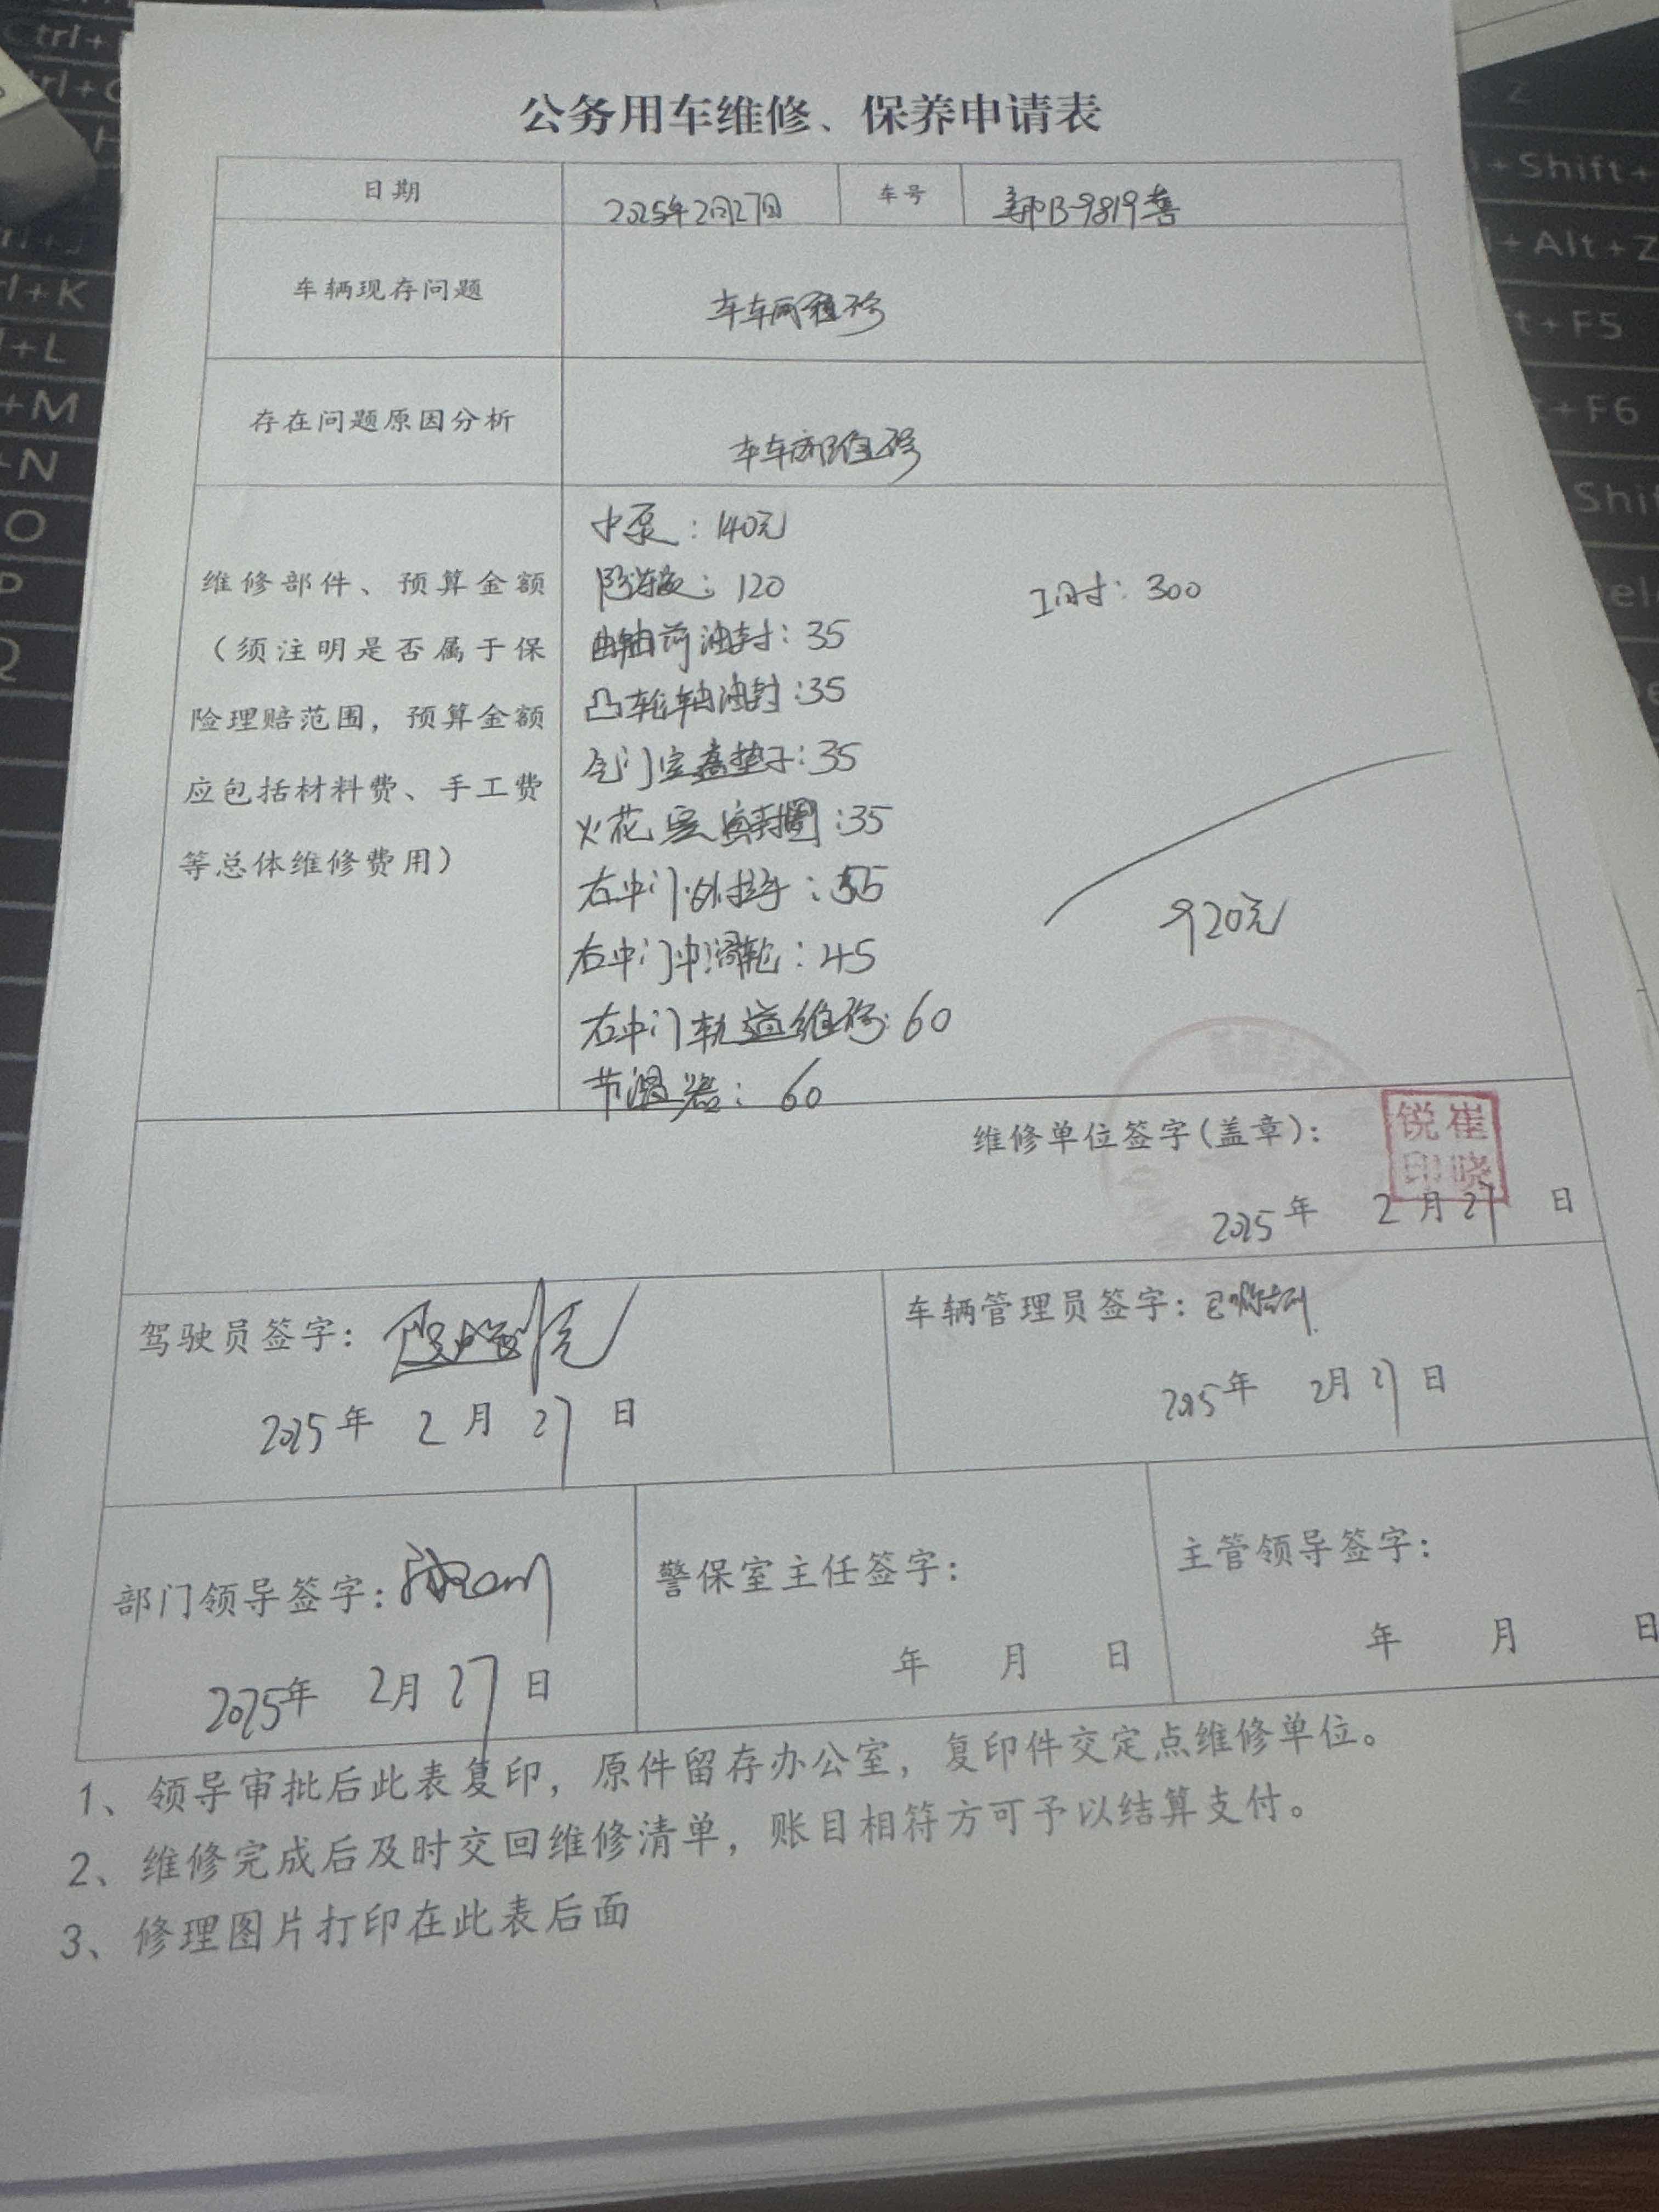 公务用车维修、保养申请表
日期 2025年2月27日 车号 新B-9819警
车辆现存问题 车车辆维修
存在问题原因分析 车车辆维修
维修部件、预算金额
（须注明是否属于保
险理赔范围，预算金额
应包括材料费、手工费
等总体维修费用）
水泵：140元
防冻液：120
工时：300
曲轴前油封：35
凸轮轴油封：35
气门室盖垫子：35
火花塞密封圈：35
右中门外拉手：55
右中门中滑轮：45
920元
右中门轨道维修：60
节温器：60
维修单位签字（盖章）：
锐崔
印晓
2025年 2月27日
驾驶员签字：
2025年 2月27日
车辆管理员签字：
2025年 2月27日
部门领导签字：
2025年 2月27日
警保室主任签字：
年 月 日
主管领导签字：
年 月 日
1、领导审批后此表复印，原件留存办公室，复印件交定点维修单位。
2、维修完成后及时交回维修清单，账目相符方可予以结算支付。
3、修理图片打印在此表后面